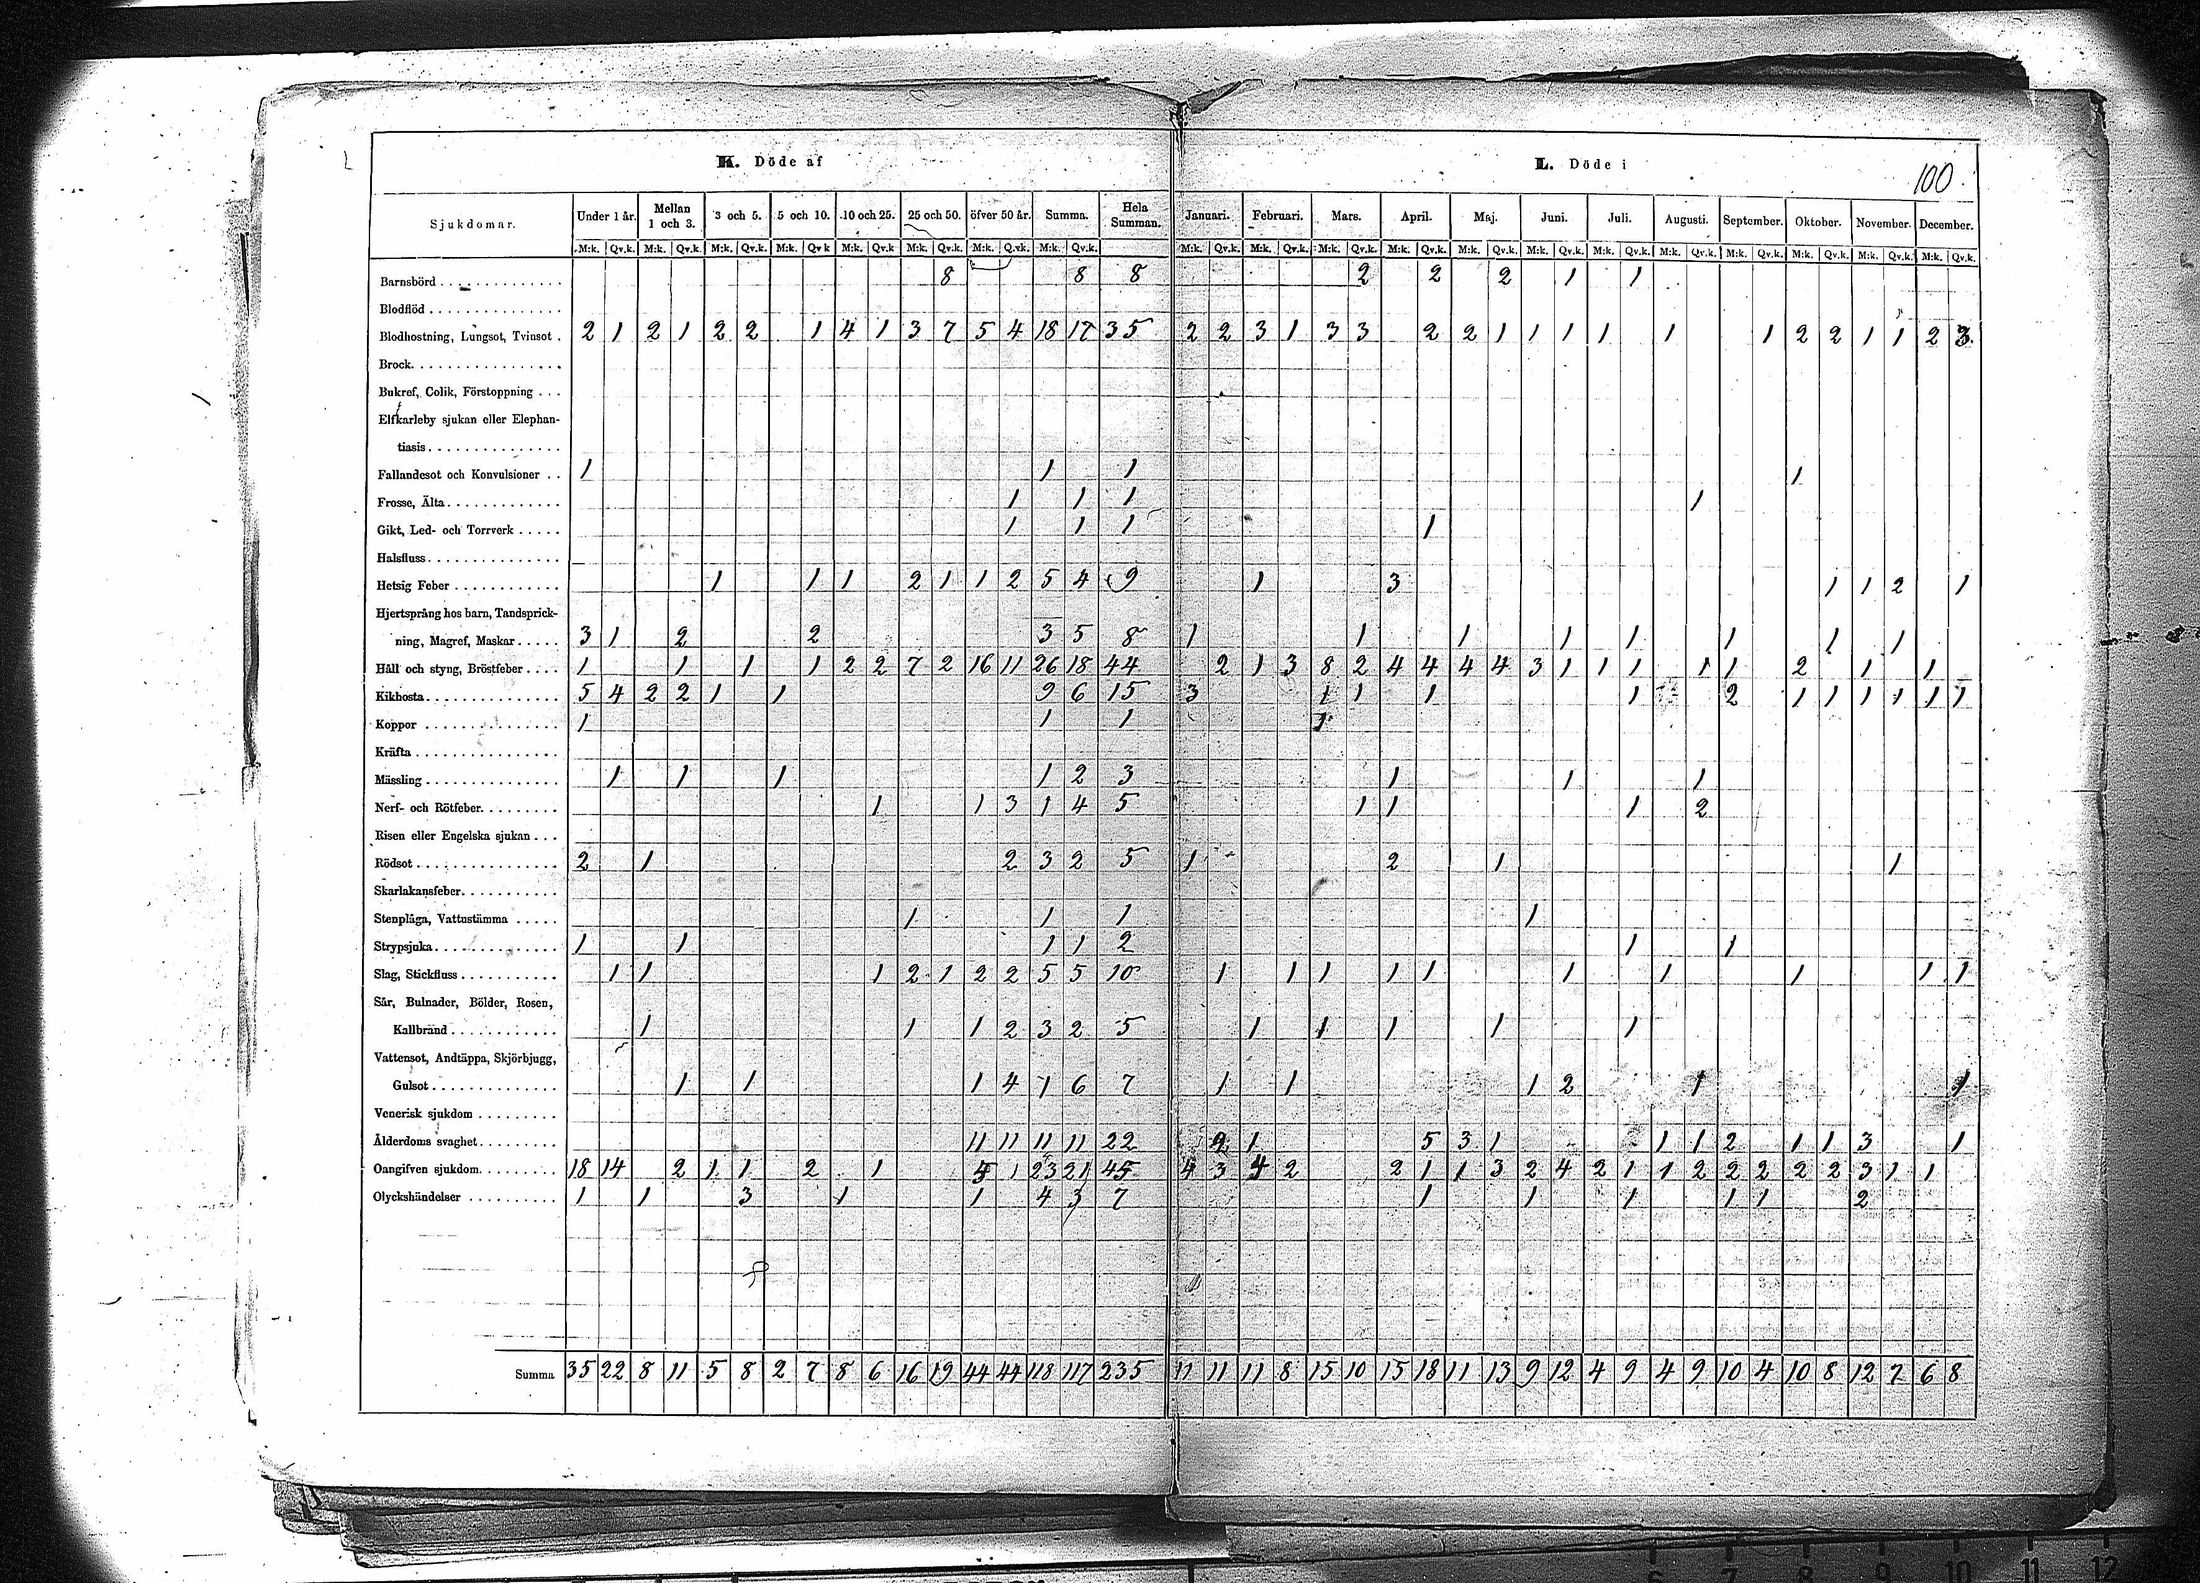 K. Döde af
L. Döde i
100.
Sjukdomar. Under 1 år. Mellan 1 och 3. 3 och 5. 5 och 10. 10 och 25. 25 och 50. öfver 50 år. Summa. Hela Summan. Januari. Februari. Mars. April. Maj. Juni. Juli. Augusti. September. Oktober. November. December.
M:k. Qv.k. M:k. Qv.k. M:k. Qv.k. M:k. Qv.k M:k. Qv.k M:k. Qv.k. M:k. Qv.k. M:k. Qv.k. M:k. Qv.k. M:k. Qv.k. M:k. Qv.k. M:k. Qv.k. M:k. Qv.k. M:k. Qv.k. M:k. Qv.k. M:k. Qv.k. M:k. Qv.k. M:k. Qv.k. M:k. Qv.k. M:k. Qv.k.
Barnsbörd 8 8 8 2 2 2 1 1
Blodflöd
Blodhostning, Lungsot, Tvinsot 2 1 2 1 2 2 1 4 1 3 7 5 4 18 17 35 2 2 3 1 3 3 2 2 1 1 1 1 1 1 2 2 1 1 2 3
Brock
Bukref, Colik, Förstoppning
Elfkarleby sjukan eller Elephan-
tiasis
Fallandesot och Konvulsioner 1 1 1 1
Frosse, Älta 1 1 1 1
Gikt, Led- och Torrverk 1 1 1 1
Halsfluss
Hetsig Feber 1 1 1 2 1 1 2 5 4 9 1 3 1 1 2 1
Hjertsprång hos barn, Tandsprick-
ning, Magref, Maskar 3 1 2 2 3 5 8 1 1 1 1 1 1 1 1
Håll och styng, Bröstfeber 1 1 1 1 2 2 7 2 16 11 26 18 44 2 1 3 8 2 4 4 4 4 3 1 1 1 1 1 2 1 1
Kikhosta 5 4 2 2 1 1 9 6 15 3 1 1 1 1 2 1 1 1 1 1 1
Koppor 1 1 1 1
Kräfta
Mässling 1 1 1 1 2 3 1 1 1
Nerf- och Rötfeber 1 1 3 1 4 5 1 1 1 2
Risen eller Engelska sjukan
Rödsot 2 1 2 3 2 5 1 2 1 1
Skarlakansfeber
Stenplåga, Vattustämma 1 1 1 1
Strypsjuka 1 1 1 1 2 1 1
Slag, Stickfluss 1 1 1 2 1 2 2 5 5 10 1 1 1 1 1 1 1 1 1 1
Sår, Bulnader, Bölder, Rosen,
Kallbrand 1 1 1 2 3 2 5 1 1 1 1 1
Vattensot, Andtäppa, Skjörbjugg,
Gulsot 1 1 1 4 1 6 7 1 1 1 2 1 1
Venerisk sjukdom
Ålderdoms svaghet 11 11 11 11 22 2 1 5 3 1 1 1 2 1 1 3 1
Oangifven sjukdom 18 14 2 1 1 2 1 1 23 21 3 4 2 2 1 1 3 2 4 2 1 1 2 2 2 2 2 3 1 1
Olyckshändelser 1 1 3 1 1 4 3 7 1 1 1 1 1 2
Summa 35 22 8 11 5 8 2 7 8 6 16 19 44 44 118 117 235 11 11 11 8 15 10 15 18 11 13 9 12 4 9 4 9 10 4 10 8 12 7 6 8
6 7 8 9 10 11 12